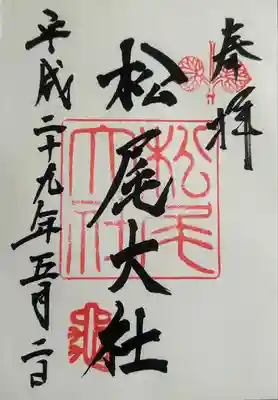 奉拝
松尾大社
平成二十九年五月二日
松尾大社